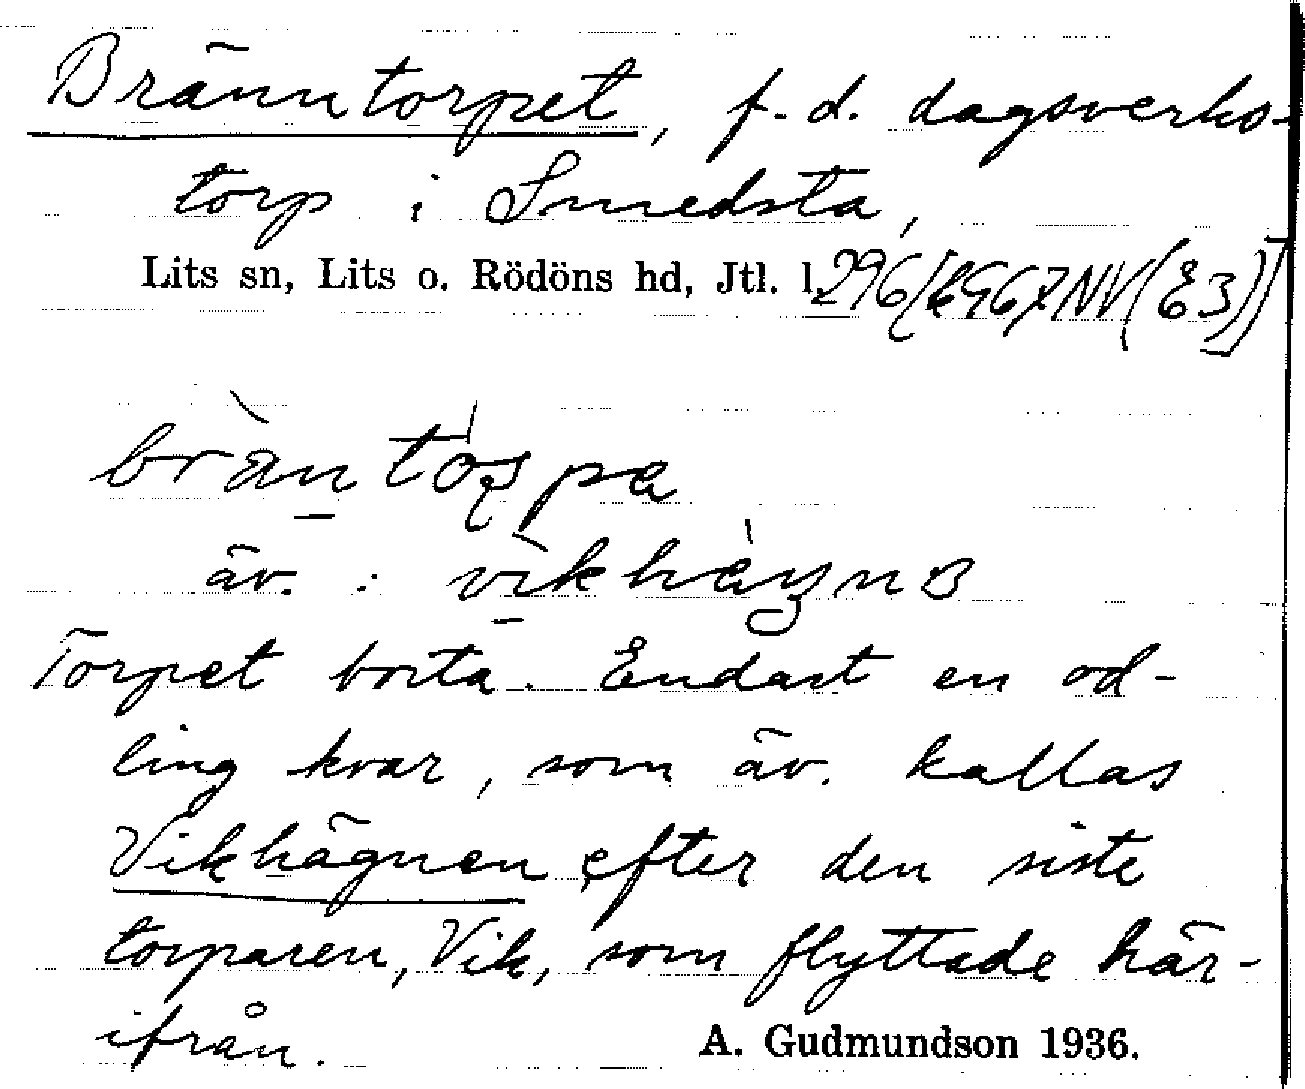 Bränntorpet, f.d. dagsverks-
torp i Smedsta,
Lits sn, Lits o. Rödöns hd, Jtl. l.
brä̀n tȯs̨pa
äv. : vìkhèŋnɐ
Torpet borta. Endast en od-
ling kvar, som äv. kallas
Vikhägnen efter den siste
torparen, Vik, som flyttade här-
ifrån.
A. Gudmundson 1936.